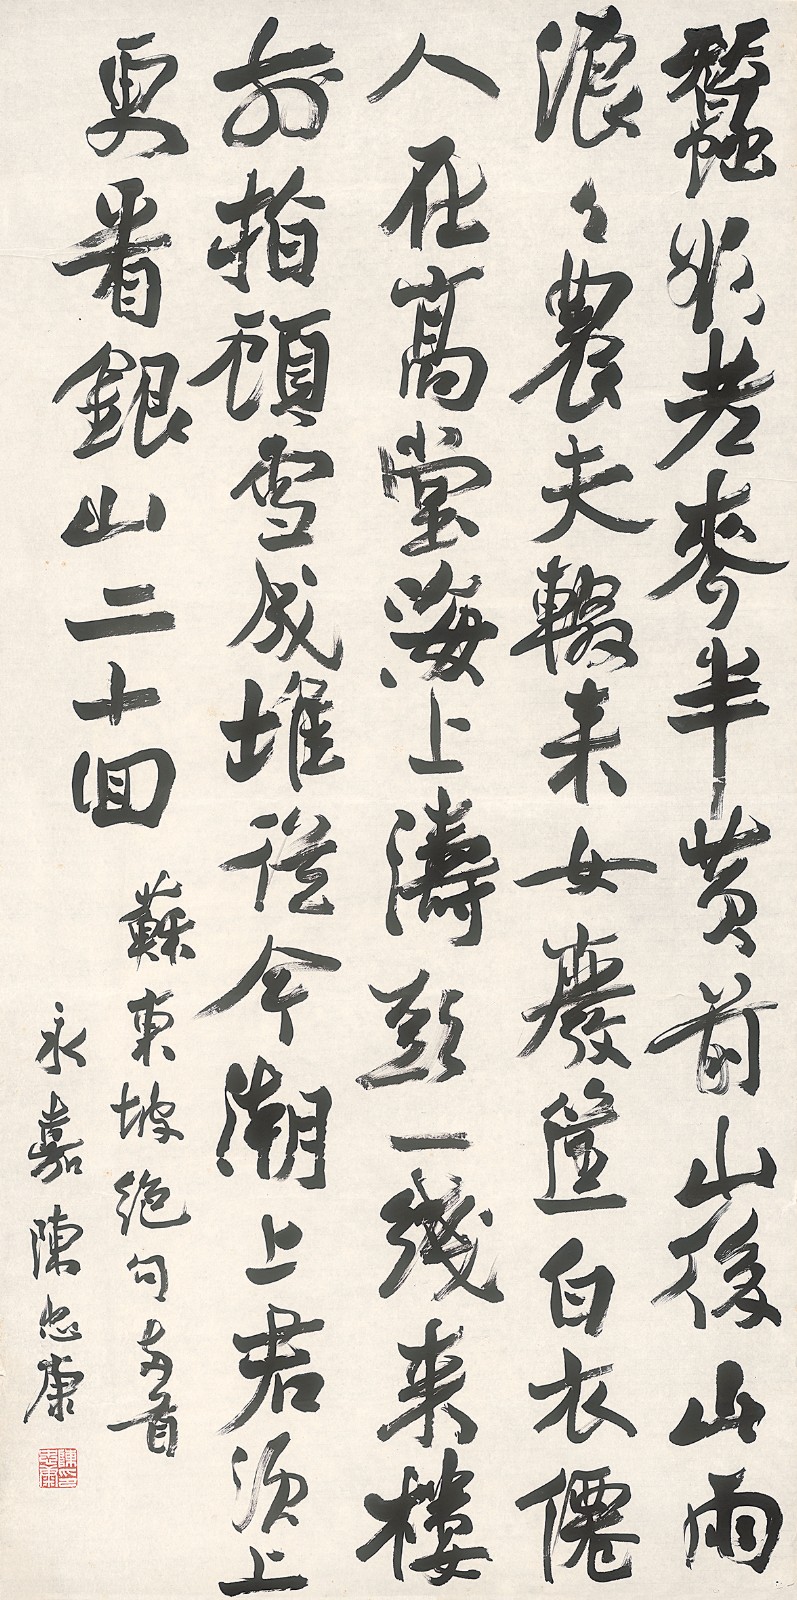 蠶欲老麥半黃前山後山雨
浪々農夫輟耒女廢筐白衣僊
人在高堂海上濤頭一綫來樓
前指顧雪成堆從今潮上君須上
更看銀山二十回
蘇東坡絕句兩首
永嘉陳忠康